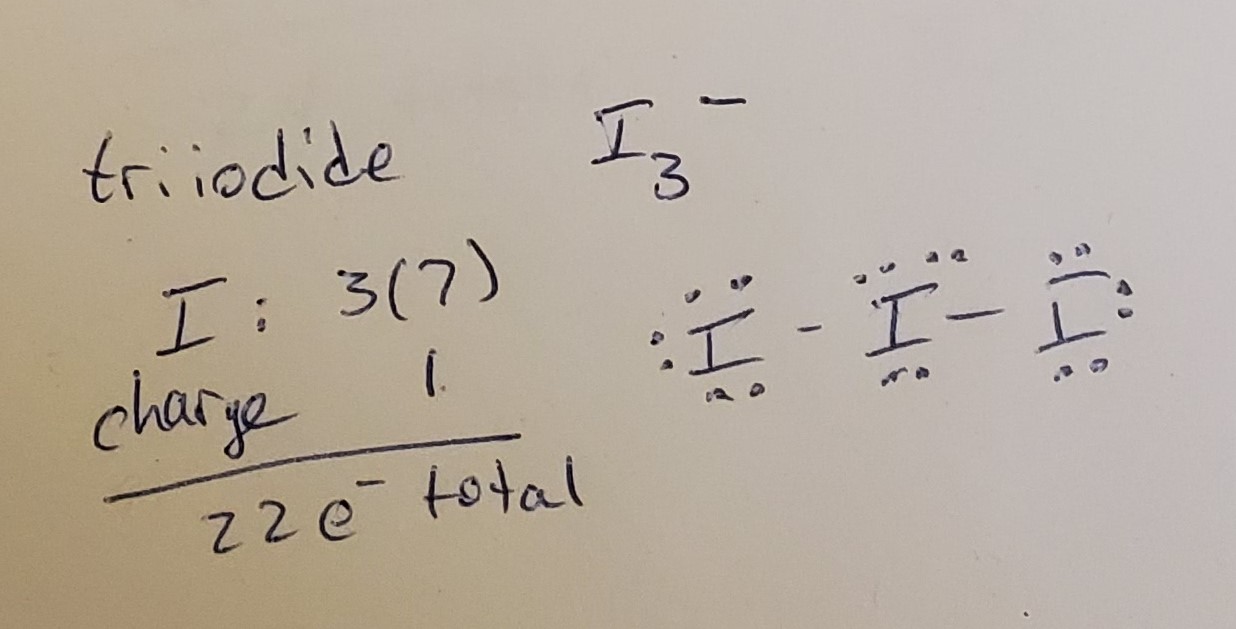 triiodide I₃⁻
I: 3(7)
charge 1
22 e⁻ total
:Ï - I - Ï: